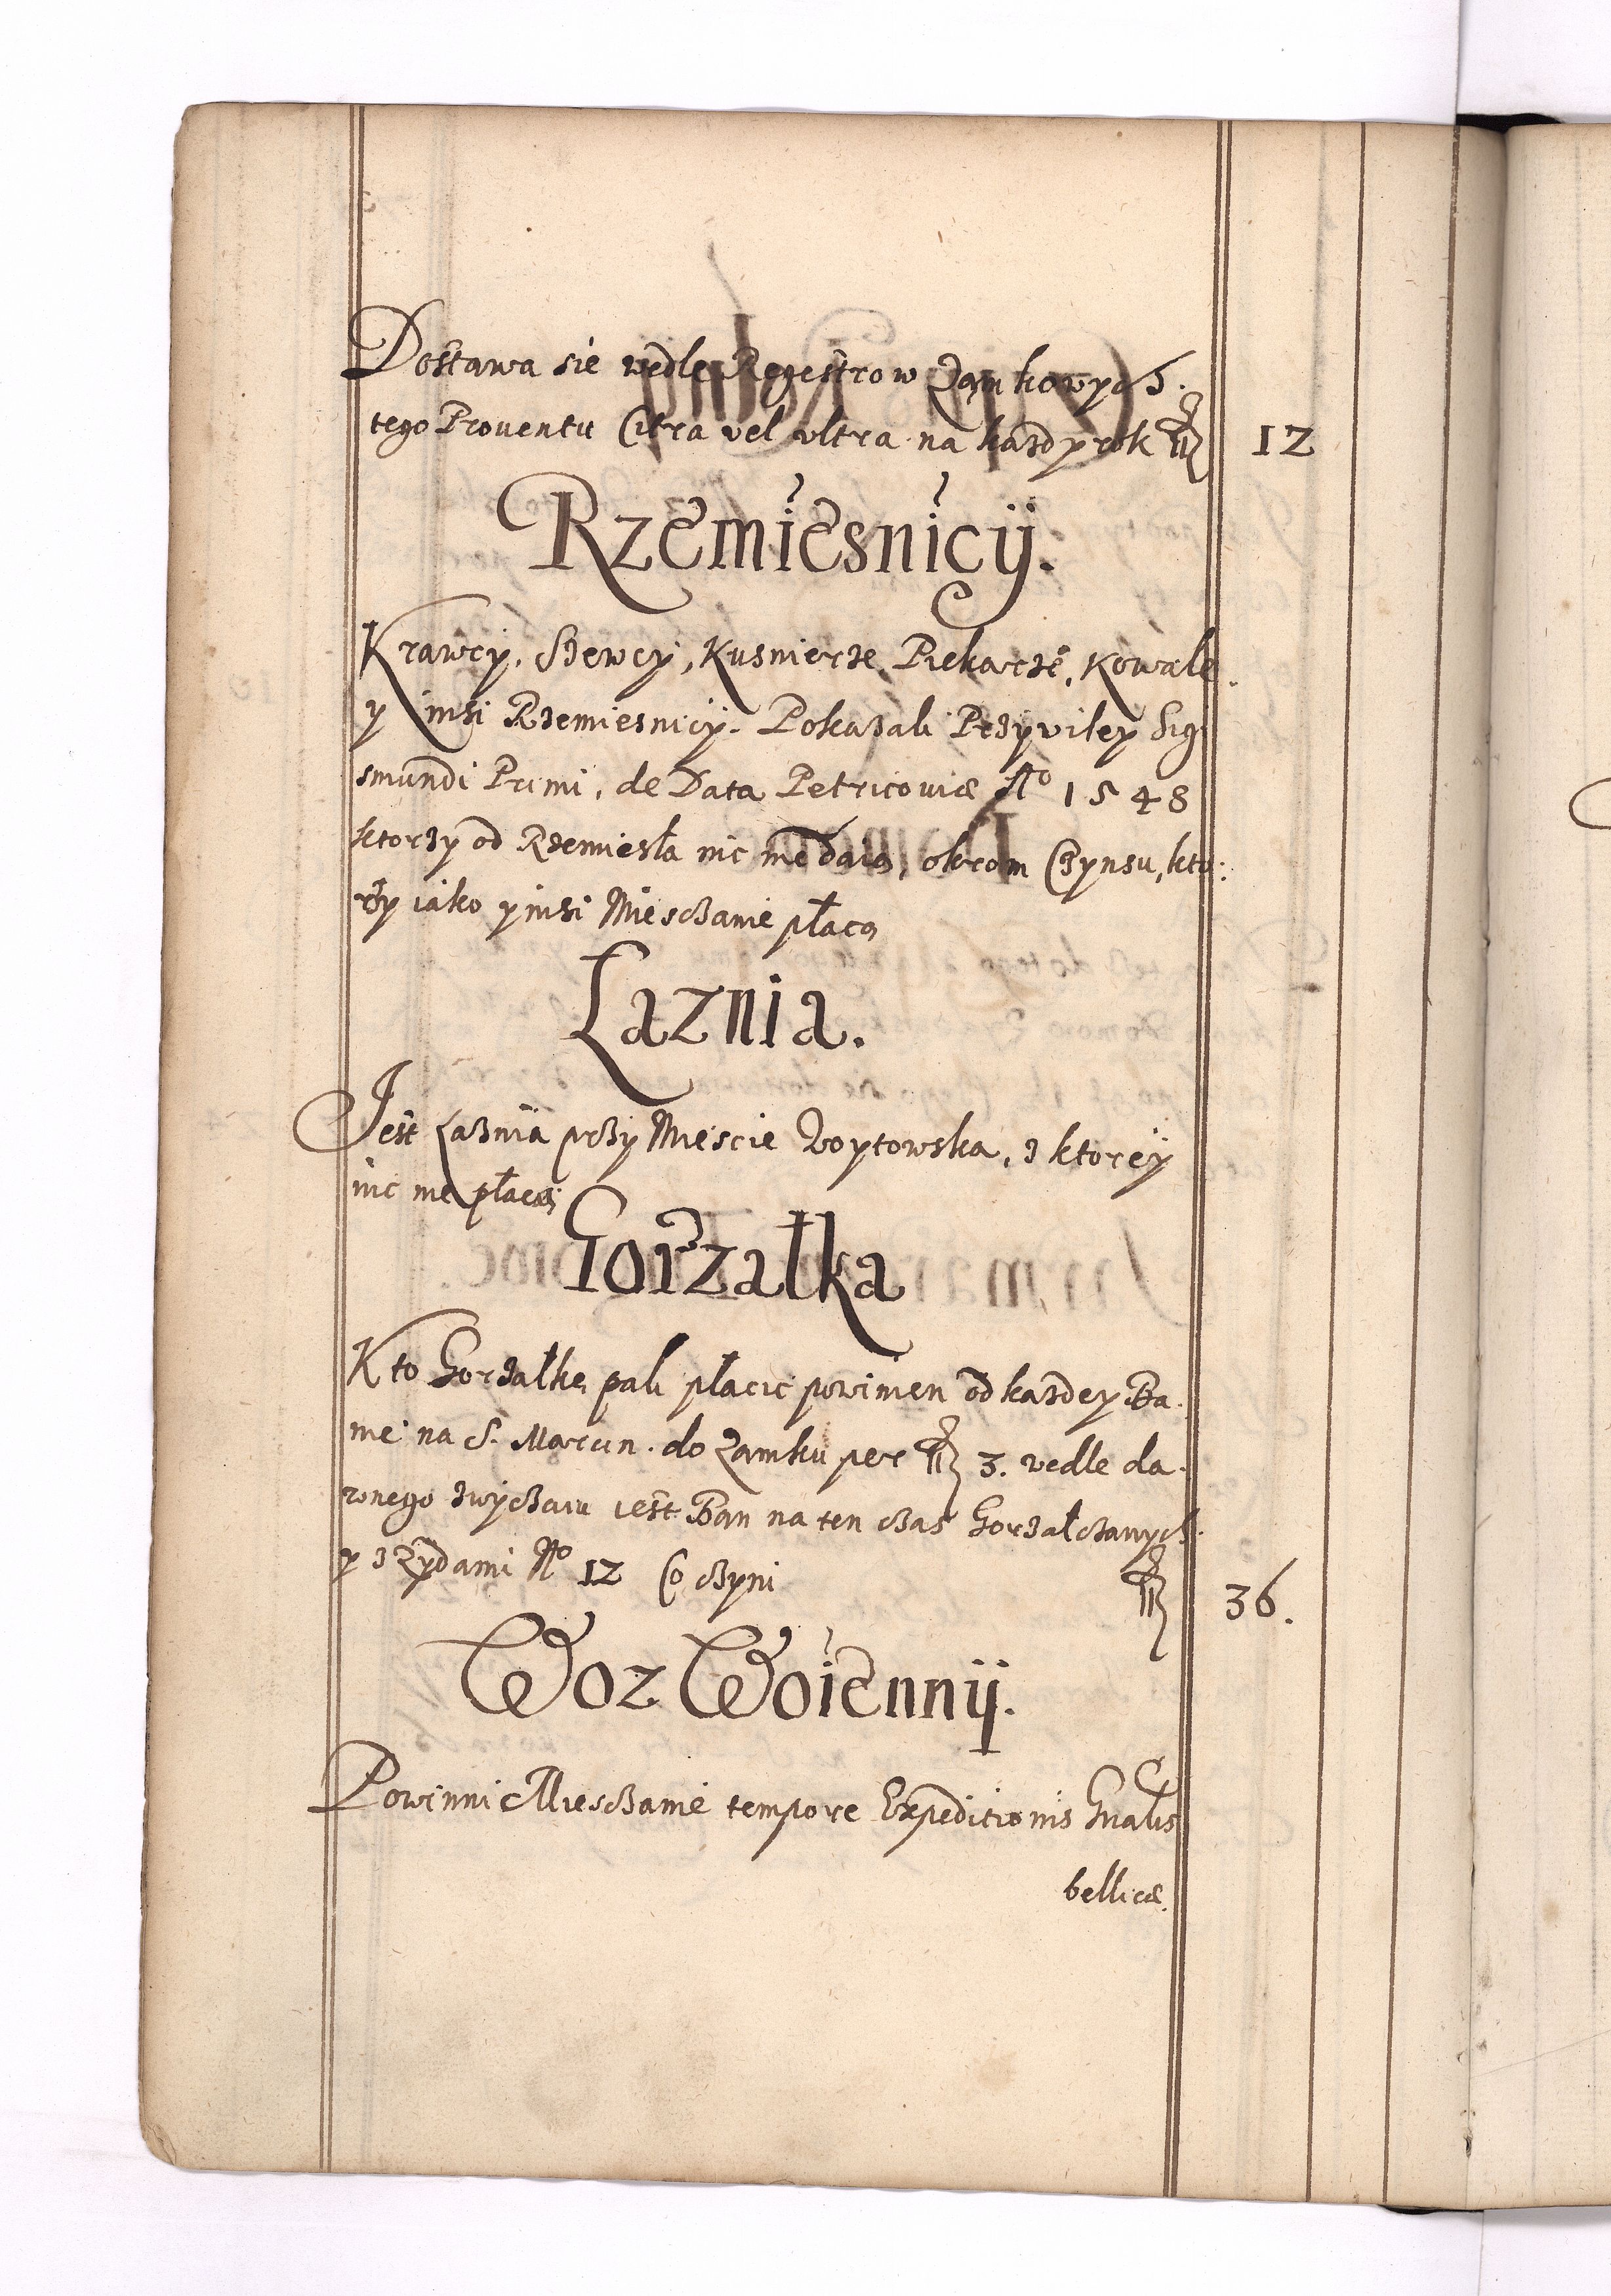 Dostawa sie wedle Regestrow Zamkowych.
tego Prouentu Citra vel vltra na kazdy rok fl 12
Rzemiesnicÿ.
Krawcy, Szewcy, Kusnierze, Piekarze, Kowale.
y inszi Rzemiesnicÿ. Pokazali Przyviley Sigi
smundi Primi, de Data Petricouiæ Aº 1548
ktorzy od Rzemiesla nic nie daią, okrom Czynsu, kto:
rzy iako y inszi Mieszczanie płacą
Łaznia.
Jest Łaznia przy Miescie Woytowska, z ktorey
nic nie płacą
Gorzałka
Kto Gorzałkę pali płacic powinien od kazdey Ba.
nie na S. Marcin. do Zamku per fl 3. vedle da.
wnego zwyczaiu iest Ban na ten czas Gorzałczanych.
y z Zydami Nº 12 Co czyni fl 36.
Woz Woiennÿ.
Powinni Mieszczanie tempore Expeditionis Gnalis
bellicæ.